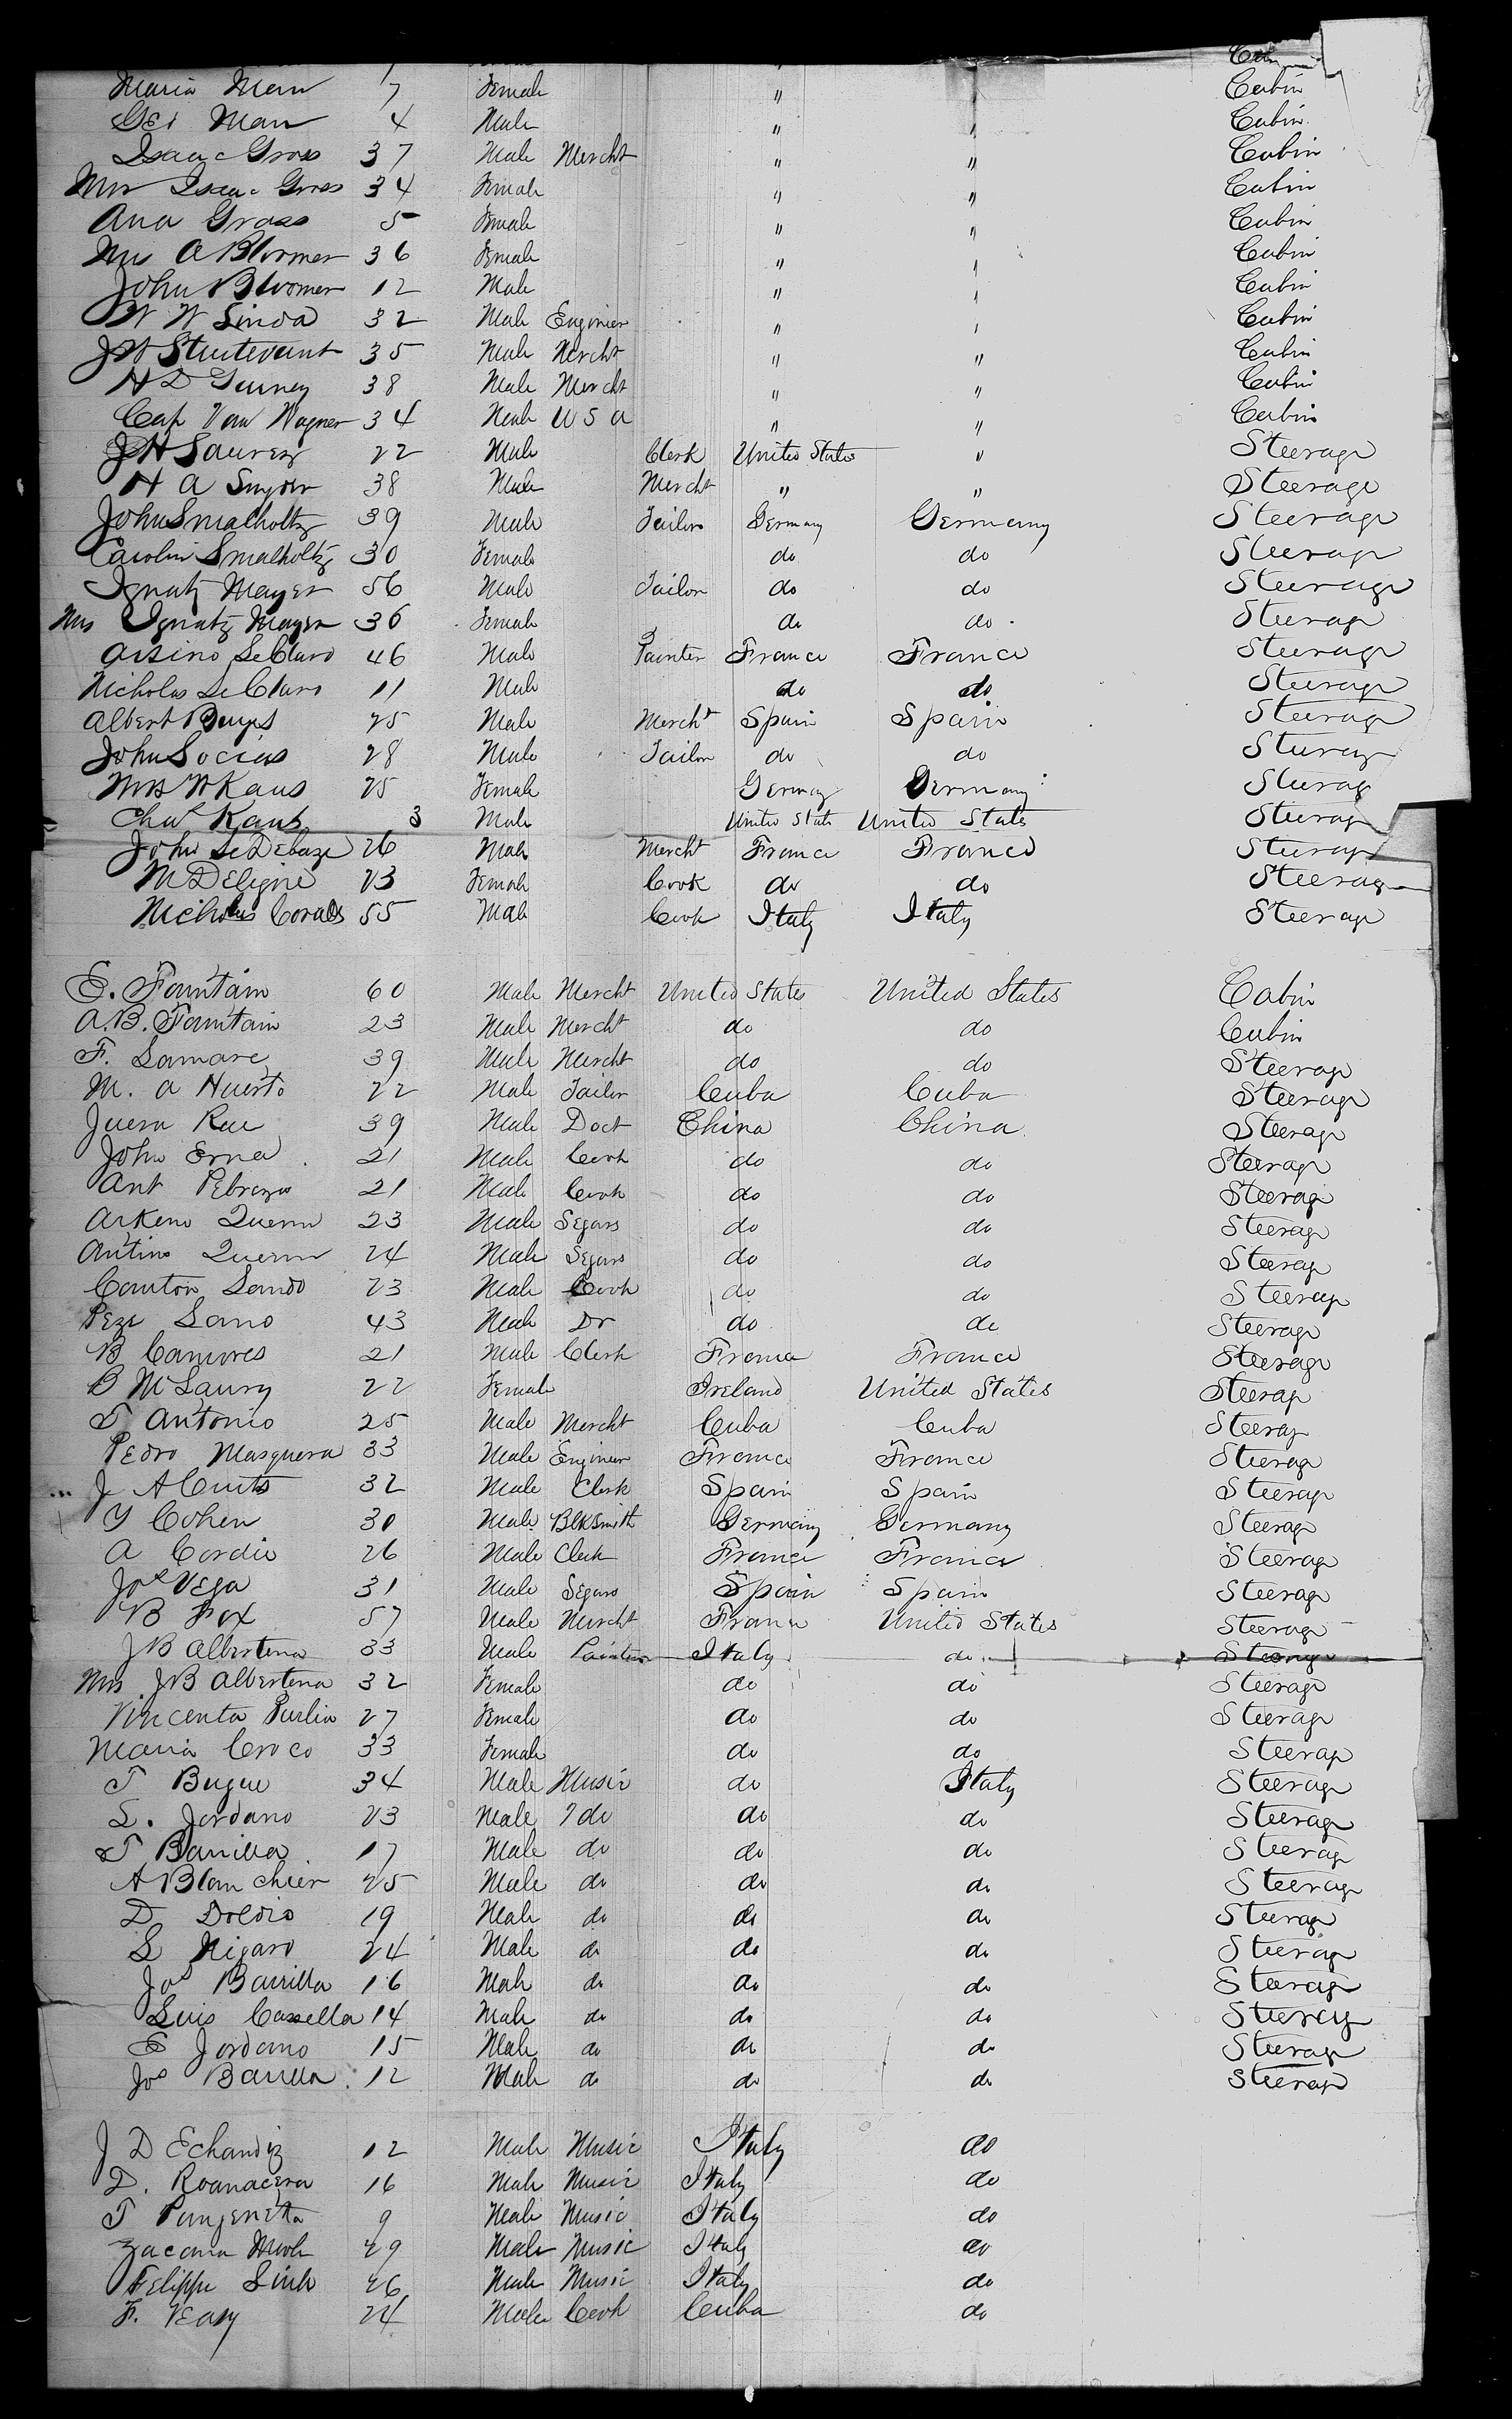 Maria Man 7 Female " " Cabin
Geo Man 4 Male " " Cabin
Isaac Gross 37 Male Mercht " " Cabin
Mrs Isaac Gross 34 Female " " Cabin
Ana Gross 5 Female " " Cabin
Mrs A Bloomer 36 Female " " Cabin
John Bloomer 12 Male " " Cabin
W W Sinda 32 Male Enginier " " Cabin
J W Sturtevant 35 Male Mercht " " Cabin
H D Gurney 38 Male Mercht " " Cabin
Cap Van Wagner 34 Male U S A " " Cabin
J H Saurez 22 Male Clerk United States " Steerage
H A Snyder 38 Male Mercht " " Steerage
John Smalholtz 39 Male Tailor Germany Germany Steerage
Carolin Smalholtz 30 Female do do Steerage
Ignatz Mayer 56 Male Tailor do do Steerage
Mrs Ignatz Mayer 36 Female do do Steerage
Arsino LeClard 46 Male Painter France France Steerage
Nicholas LeClard 11 Male do do Steerage
Albert 25 Male Mercht Spain Spain Steerage
John Socias 28 Male Tailor do do Steerage
Mrs W Kaus 25 Female Germany Germany Steerage
Chas Kaus 3 Male United State United States Steerage
John 26 Male Mercht France France Steerage
M Deligne 23 Female Cook do do Steerage
Nicholas Corals 55 Male Cook Italy Italy Steerage
E. Fountain 60 Male Mercht United States United States Cabin
A. B. Fountain 23 Male Mercht do do Cabin
F. Lamare 39 Male Mercht do do Steerage
M. A Huerto 22 Male Tailor Cuba Cuba Steerage
Juera Rue 39 Male Doct China China Steerage
John Erna 21 Male Cook do do Steerage
Ant 21 Male Cook do do Steerage
Arkeno Querin 23 Male Segars do do Steerage
Antino Querin 24 Male Segars do do Steerage
Canton Lando 23 Male Cook do do Steerage
Peze Lano 43 Male Dr do do Steerage
B Camores 21 Male Clerk France France Steerage
B McLaury 22 Female Ireland United States Steerage
T Antonio 25 Male Mercht Cuba Cuba Steerage
Pedro Masquera 33 Male Enginier France France Steerage
J A Cuits 32 Male Clerk Spain Spain Steerage
Y Cohen 30 Male Blksmith Germany Germany Steerage
A Cordie 26 Male Clerk France France Steerage
Jos Vega 31 Male Segars Spain Spain Steerage
B Fox 57 Male Mercht France United States Steerage
J B Albertena 33 Male Painter Italy do Steerage
Mrs J B Albertena 32 Female do do Steerage
Vincenta Purlia 27 Female do do Steerage
Maria Croco 33 Female do do Steerage
T Bugue 34 Male Music do Italy Steerage
L. Jordano 23 Male do do do Steerage
T Barilla 17 Male do do do Steerage
A Blanchier 25 Male do do do Steerage
D Doldio 19 Male do do do Steerage
L Nigaro 24 Male do do do Steerage
Jos Barrilla 16 Male do do do Steerage
Luis Cassella 14 Male do do do Steerage
E Jordano 15 Male do do do Steerage
Jos Barilla 12 Male do do do Steerage
J D Echandiz 12 Male Music Italy do
D. Roanacera 16 Male Music Italy do
T Panjeneta 9 Male Music Italy do
Zacona 29 Male Music Italy do
Felippe 26 Male Music Italy do
F. Veasy 24 Male Cook Cuba do